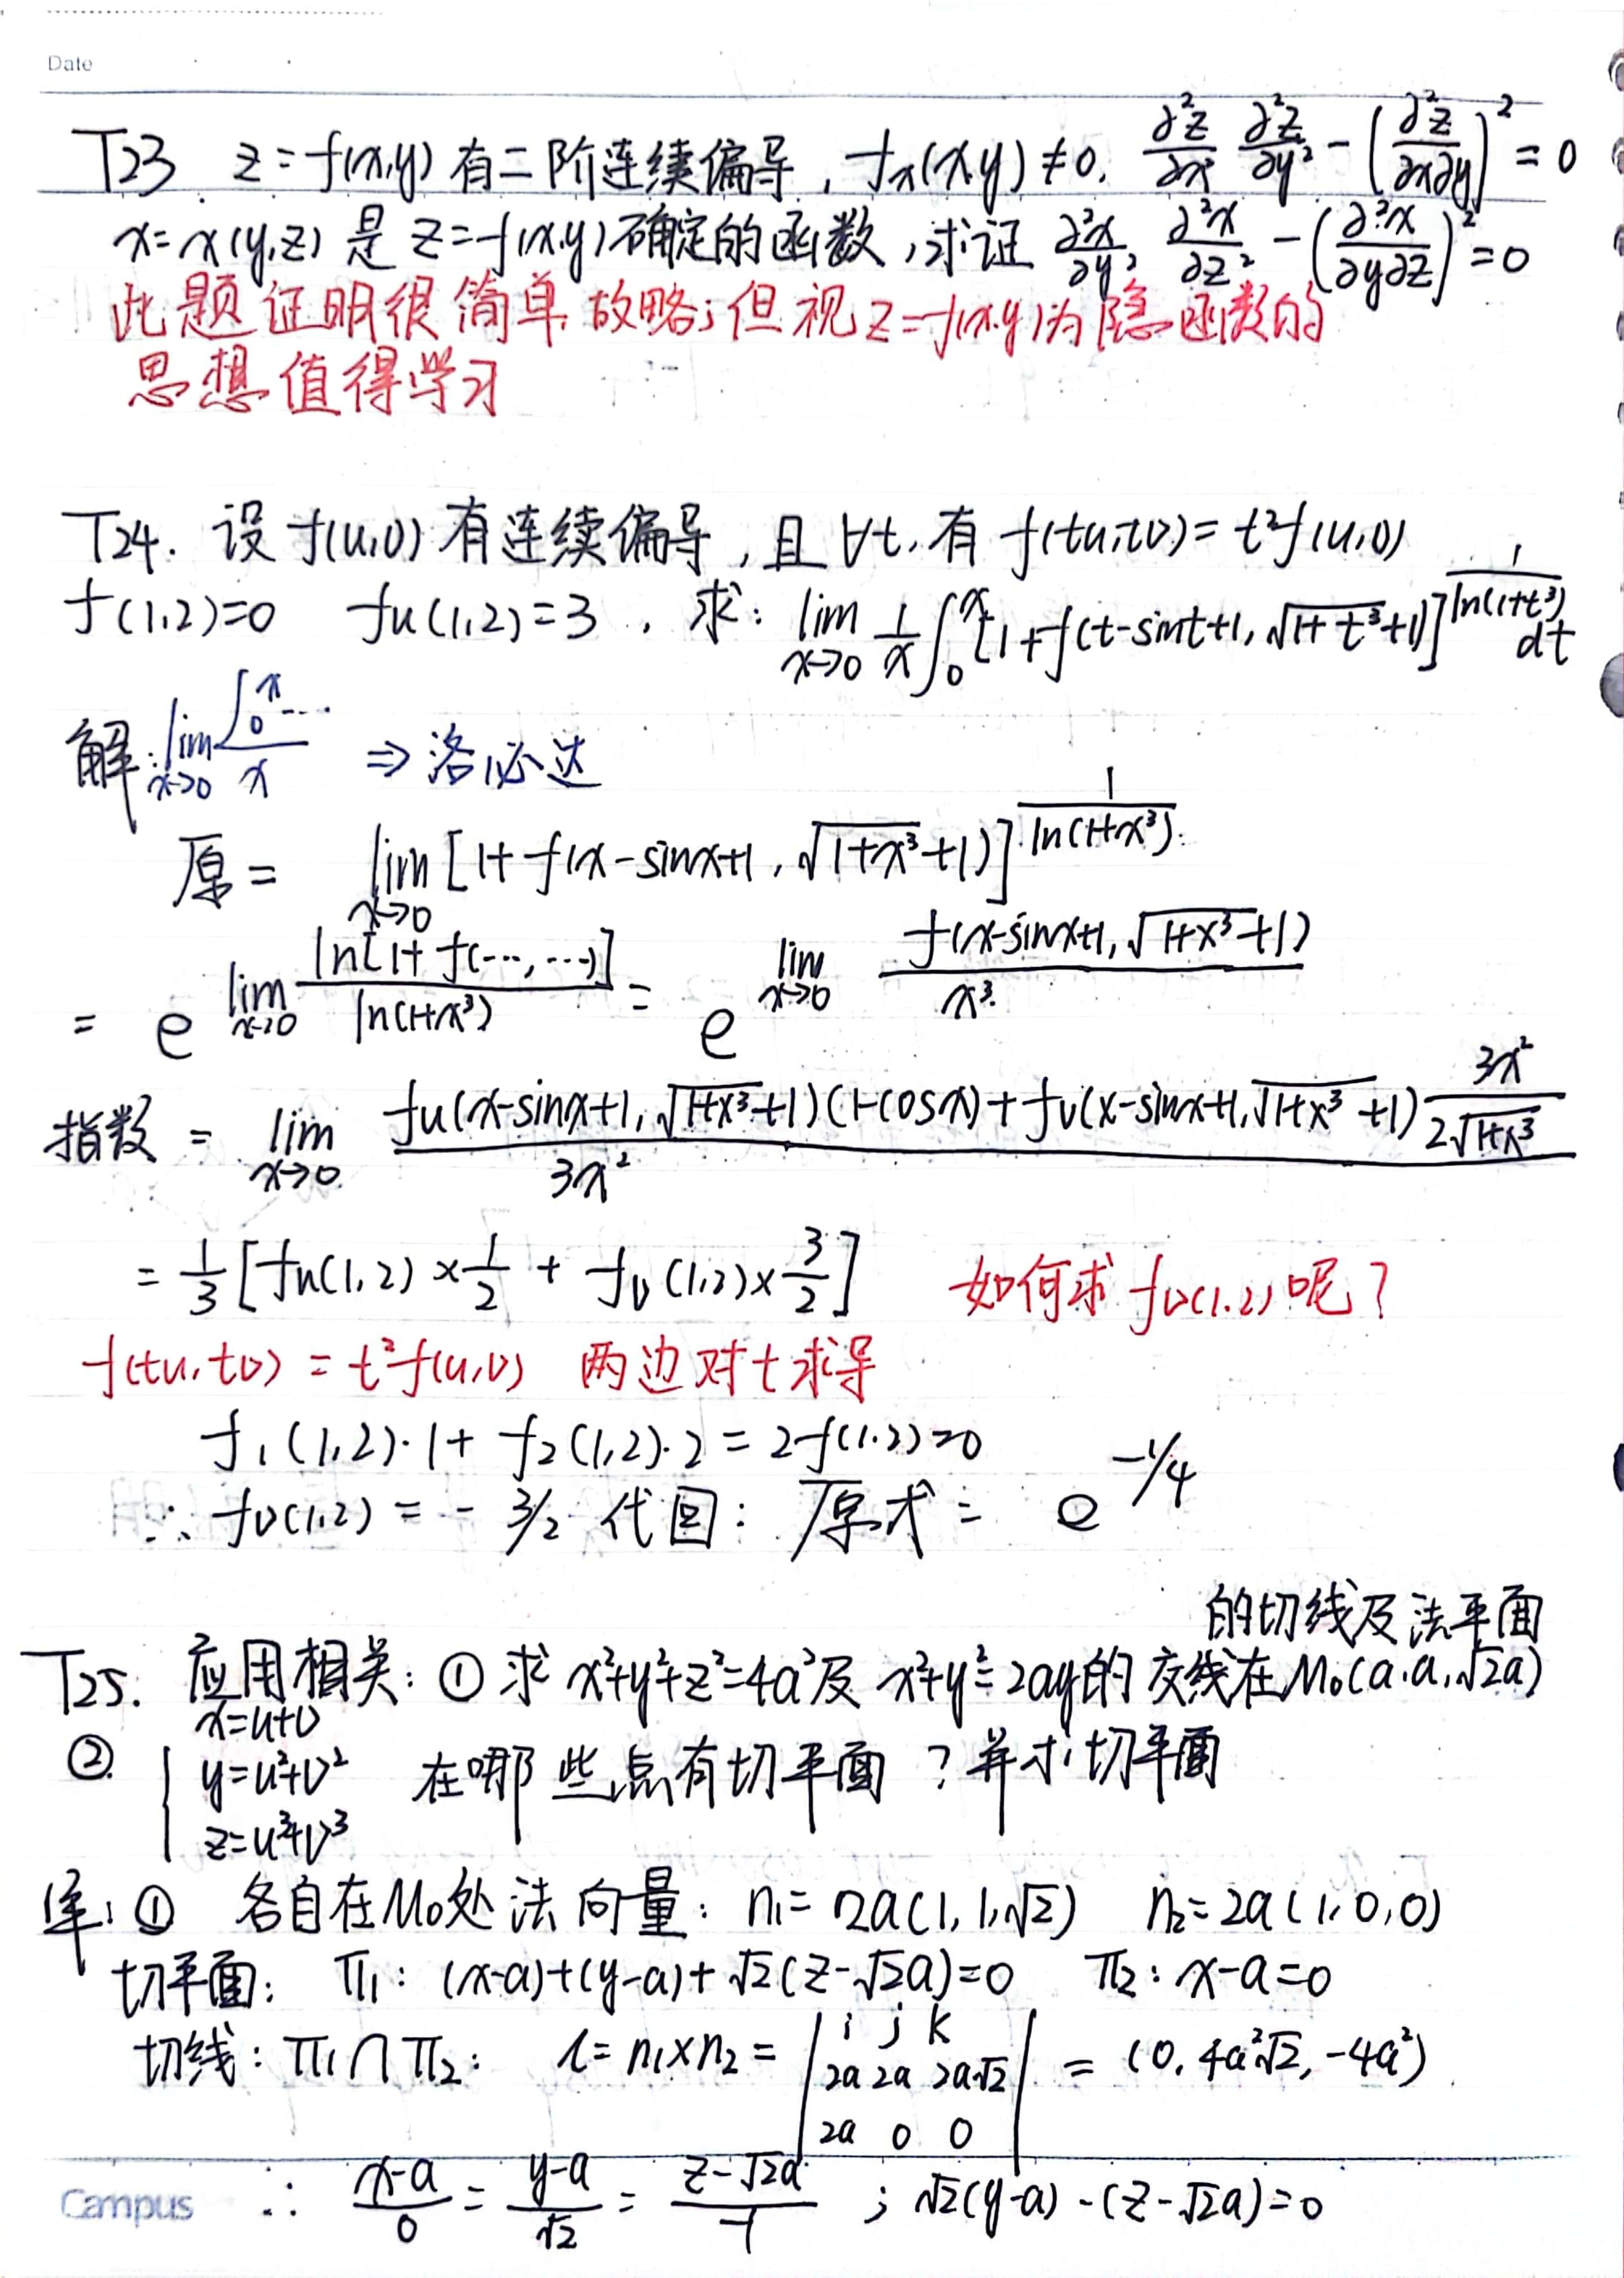 Date
T23 z=f(x,y)有二阶连续偏导,fx(x,y)≠0. ∂²z/∂x² ∂²z/∂y² - (∂²z/∂x∂y)² = 0
x=x(y,z)是z=f(x,y)确定的函数,求证 ∂²x/∂y² ∂²x/∂z² - (∂²x/∂y∂z)² = 0
此题证明很简单,故略;但视z=f(x,y)为隐函数的
思想值得学习
T24. 设f(u,v)有连续偏导,且∀t,有f(tu,tv)=t²f(u,v)
f(1,2)=0 fu(1,2)=3 . 求: lim x→0 1/x ∫₀ˣ[1+f(t-sint+1,√(1+t³)+1)]^(1/ln(1+t³)) dt
解: lim x→0 ∫₀ˣ.../x ⇒洛必达
原= lim x→0 [1+f(x-sinx+1,√(1+x³)+1)]^(1/ln(1+x³)).
= e^(lim x→0 ln[1+f(…,…)]/ln(1+x³)) = e^(lim x→0 f(x-sinx+1,√(1+x³)+1)/x³)
指数 = lim x→0 [fu(x-sinx+1,√(1+x³)+1)(1-cosx)+fv(x-sinx+1,√(1+x³)+1) 3x²/(2√(1+x³))]/3x²
= 1/3[fu(1,2)×1/2 + fv(1,2)×3/2] 如何求fv(1,2)呢?
f(tu,tv)=t²f(u,v) 两边对t求导
f₁(1,2)·1+f₂(1,2)·2=2f(1,2)=0
∴ fv(1,2)=-3/2 代回: 原式= e^(-1/4)
的切线及法平面
T25. 应用相关:①求x²+y²+z²=4a²及x²+y²=2ay的交线在M₀(a,a,√2a)
② { x=u+v
y=u²+v² 在哪些点有切平面?并求切平面
z=u³+v³
解:① 各自在M₀处法向量: n₁=2a(1,1,√2) n₂=2a(1,0,0)
切平面: π₁: (x-a)+(y-a)+√2(z-√2a)=0 π₂: x-a=0
切线: π₁∩π₂: l=n₁×n₂= |i j k
2a 2a 2a√2
2a 0 0| = (0,4a²√2,-4a²)
∴ (x-a)/0 = (y-a)/√2 = (z-√2a)/-1 ; √2(y-a)-(z-√2a)=0
Campus